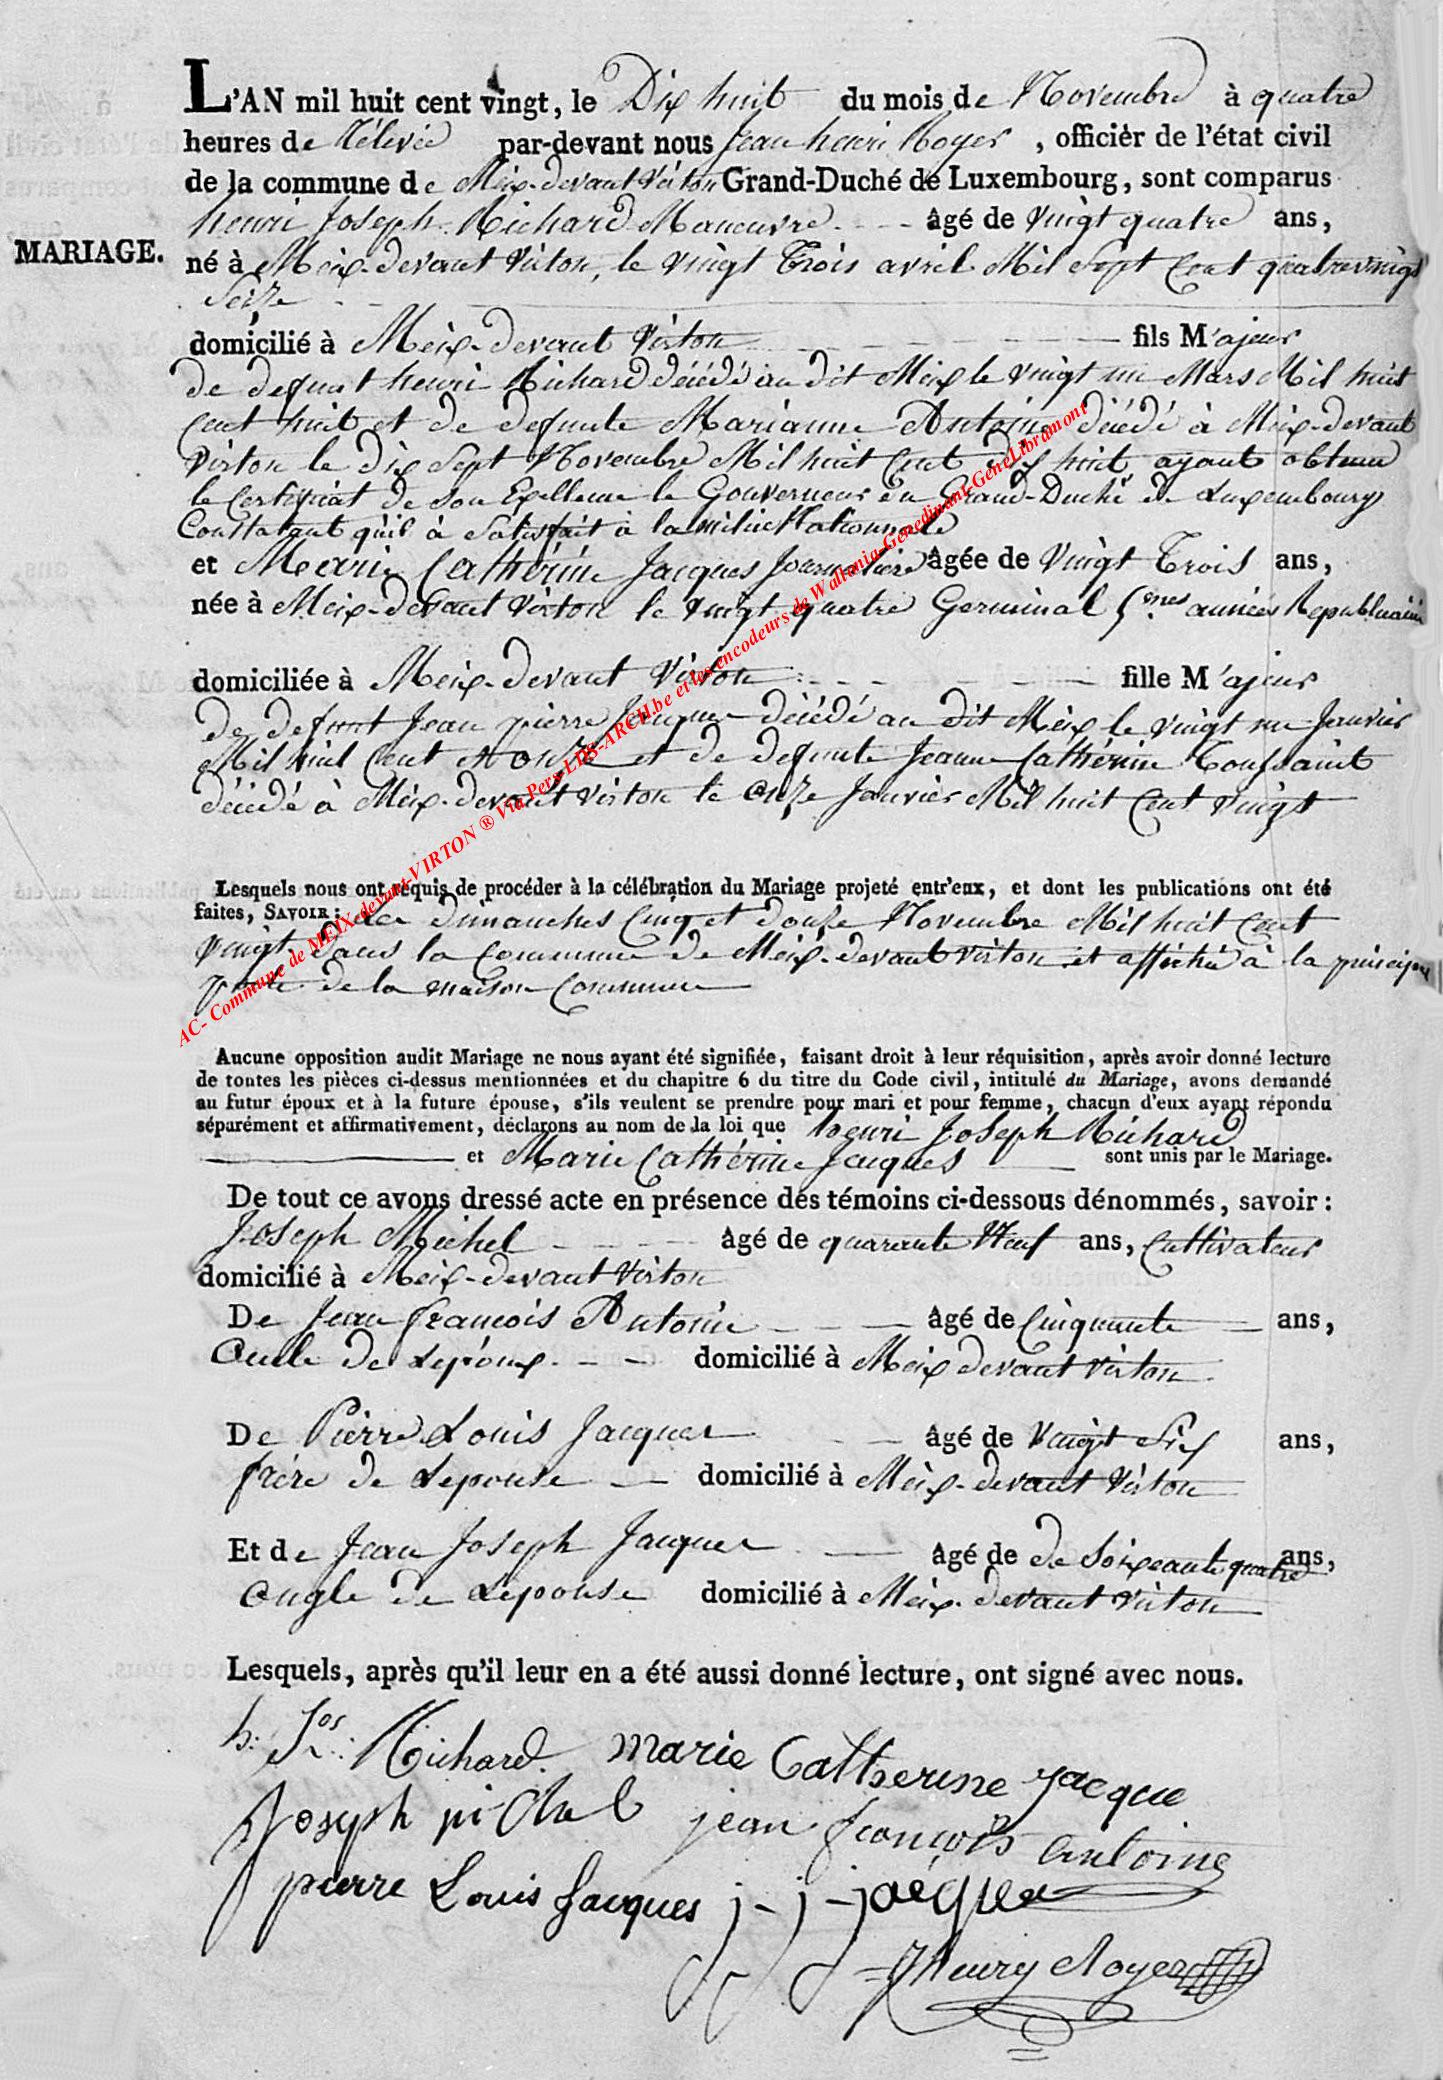 L'AN mil huit cent vingt, le Dix huit du mois de Novembre à quatre
heures de rélevée par-devant nous Jean henri Royer, officier de l'état civil
de la commune de Meix-devant Virton Grand-Duché de Luxembourg, sont comparus
henri Joseph Richard Maneuvre - - - âgé de vingt quatre ans,
MARIAGE.
né à Meix-devant Virton, le vingt Trois avril Mil Sept Cent quatrevingt
Seize - -
domicilié à Meix-devant Virton - - - - fils Majeur
de defunt henri Richard décédé au dit Meix le vingt un Mars Mil huit
Cent huit et de defunte Marianne Antoine décédé à Meix-devant
Virton le dix Sept Novembre Mil huit Cent dix huit, ayant obtenu
le Certificat de Son Exellence le Gouverneur du Grand-Duché de Luxembourg
Constatant qu'il à Satisfait à la milice Nationale
et Marie Cathérine Jacques Journaliere âgée de vingt Trois ans,
née à Meix-devant Virton le vingt quatre Germinal 5mes années Republicaine
domiciliée à Meix-devant Virton - - - - fille Majeur
de defunt Jean pierre Jacques décédé au dit Meix le vingt un Janvier
Mil huit Cent onze et de defunte Jeanne Cathérine Toussaint
décédé à Meix-devant Virton le onze Janvier Mil huit Cent vingt
Lesquels nous ont requis de procéder à la célébration du Mariage projeté entr'eux, et dont les publications ont été
faites, SAVOIR: les Dimanches Cinq et douze Novembre Mil huit Cent
vingt dans la Commune de Meix-devant Virton et affiché à la principale
porte de la maison Commune
Aucune opposition audit Mariage ne nous ayant été signifiée, faisant droit à leur réquisition, après avoir donné lecture
de toutes les pièces ci-dessus mentionnées et du chapitre 6 du titre du Code civil, intitulé du Mariage, avons demandé
au futur époux et à la future épouse, s'ils veulent se prendre pour mari et pour femme, chacun d'eux ayant répondu
séparément et affirmativement, déclarons au nom de la loi que henri Joseph Richard
et Marie Cathérine Jacques sont unis par le Mariage.
De tout ce avons dressé acte en présence des témoins ci-dessous dénommés, savoir:
Joseph Michel - - - âgé de quarante Neuf ans, Cultivateur
domicilié à Meix-devant Virton
De Jean françois Antoine - - - âgé de Cinquante ans,
Oncle de Lepoux - - domicilié à Meix devant Virton
De Pierre Louis Jacques - âgé de vingt Six ans,
frère de Lepouse - domicilié à Meix-devant Virton
Et de Jean Joseph Jacques - âgé de de Soixante quatre ans,
Ongle de Lepouse domicilié à Meix-devant Virton
Lesquels, après qu'il leur en a été aussi donné lecture, ont signé avec nous.
h: Jos: Richard. marie Catherine jacque
Joseph michel jean françois antoine
pierre Louis Jacques j-j-jacques
JHenry Royer
AC- Commune de MEIX-devant-VIRTON ® Via Pers-LDS-ARCH.be et les encodeurs de Wallonia-Genedinant-GeneLibramont